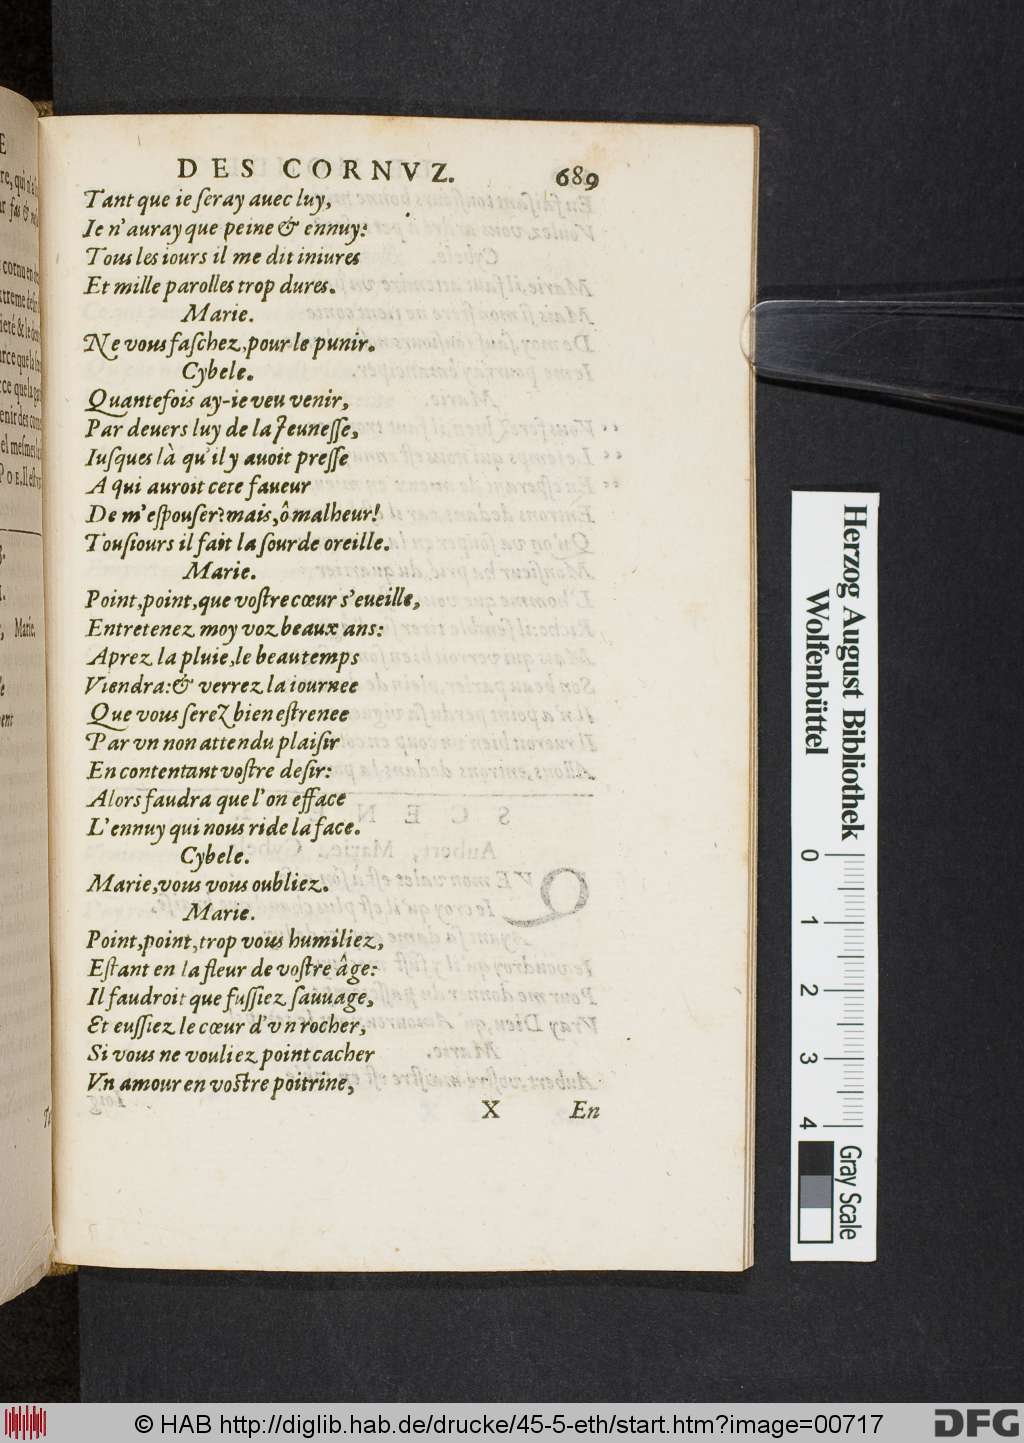 DES CORNVZ. 689
Tant que ie ſeray auec luy,
Ie n'auray que peine & ennuy:
Tous les iours il me dit iniures
Et mille parolles trop dures.
Marie.
Ne vous faſchez, pour le punir.
Cybele.
Quantefois ay-ie veu venir,
Par deuers luy de la Jeuneſſe,
Iuſques là qu'il y auoit preſſe
A qui auroit cete faueur
De m'eſpouſer? mais, ô malheur!
Touſiours il fait la ſourde oreille.
Marie.
Point, point, que voſtre cœur s'eueille,
Entretenez moy voz beaux ans:
Aprez la pluie, le beau temps
Viendra: & verrez la iournee
Que vous ſerez bien eſtrenee
Par vn non attendu plaiſir
En contentant voſtre deſir:
Alors faudra que l'on efface
L'ennuy qui nous ride la face.
Cybele.
Marie, vous vous oubliez.
Marie.
Point, point, trop vous humiliez,
Eſtant en la fleur de voſtre âge:
Il faudroit que fuſſiez ſauuage,
Et euſſiez le cœur d'vn rocher,
Si vous ne vouliez point cacher
Vn amour en voſtre poitrine,
X En
Herzog August Bibliothek
Wolfenbüttel
0 1 2 3 4
Gray Scale
© HAB http://diglib.hab.de/drucke/45-5-eth/start.htm?image=00717
DFG